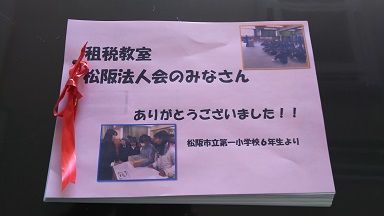 租税教室
松阪法人会のみなさん
ありがとうございました！！
松阪市立第一小学校６年生より